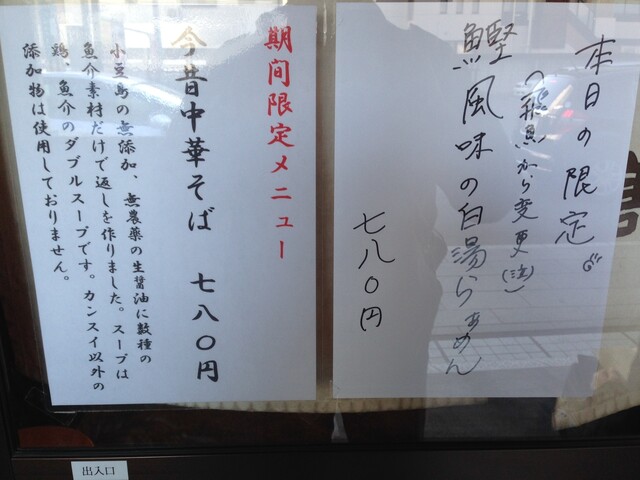 本日の限定
(飛魚から変更(注))
鰹風味の白湯らぁめん
七八〇円
期間限定メニュー
今昔中華そば 七八〇円
小豆島の無添加、無農薬の生醤油に数種の
魚介素材だけで返しを作りました。スープは
鶏、魚介のダブルスープです。カンスイ以外の
添加物は使用しておりません。
出入口